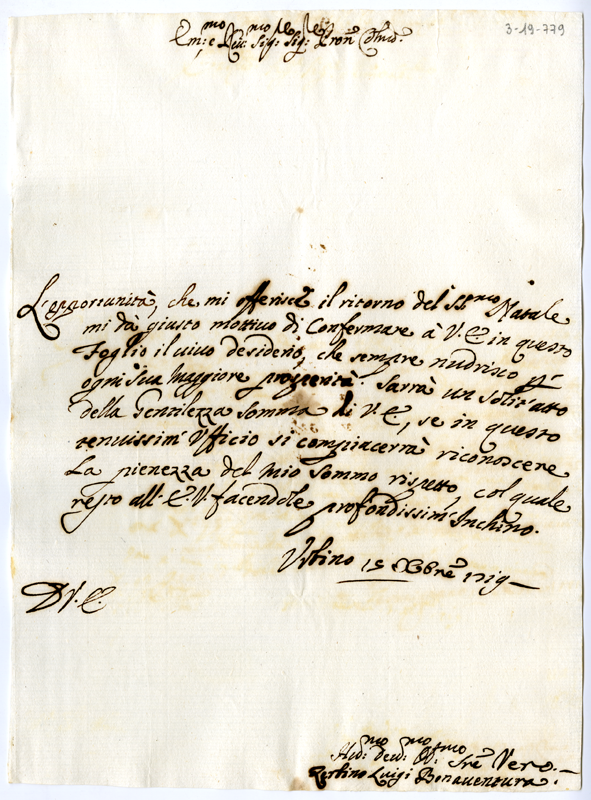 3-19-779
Em:mo e Rev:mo Sig:re Sig:re Pron
L'opportunità, che mi offerisce il ritorno del SS.mo Natale
mi dà giusto mottivo di Confermare à V.E. in questo
Foglio il vivo desiderio, che sempre nudrisco p
ogni Sua Maggiore prosperità. Sarrà un solit'atto
della Gentilezza Somma di V.E., se in questo
tenuissim'Ufficio si compiacerrà riconoscere
La pienezza del mio Sommo rispetto, col quale
resto all'E.V. facendole profondissim'Inchino.
Urbino 15 Xbre 1719
D V.E.
Um:mo dev:mo Ob:mo Sre Vero
Luigi Bonaventura.